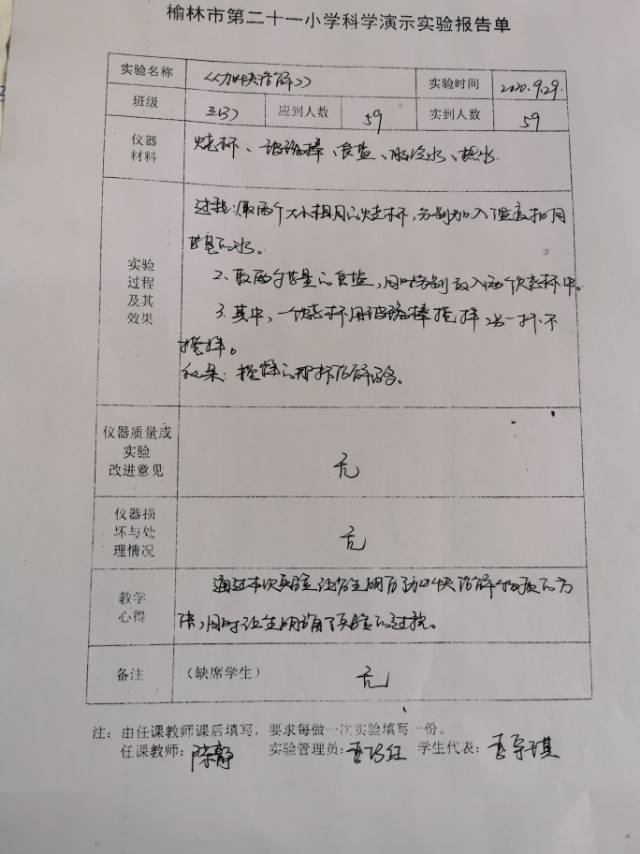 榆林市第二十一小学科学演示实验报告单
实验名称 《加快溶解》 实验时间 2020.9.29.
班级 三(3) 应到人数 59 实到人数 59
仪器
材料
烧杯、玻璃棒、食盐、冷水、热水
实验
过程
及其
效果
过程:取两个大小相同的烧杯,分别加入温度相同
等量的水。
2、取两个等量的食盐,同时分别放入两个烧杯中。
3.其中,一个烧杯用玻璃棒搅拌 一杯不
搅拌。
效果:搅拌的那杯溶解
仪器质量或
实验
改进意见
无
仪器损
坏与处
理情况
无
教学
心得
通过本次实验让学生明白了加快溶解物质的方
法,同时让生明白了实验的过程。
备注 (缺席学生) 无
注:由任课教师课后填写,要求每做一次实验填写一份。
任课教师:陈静 实验管理员: 学生代表: